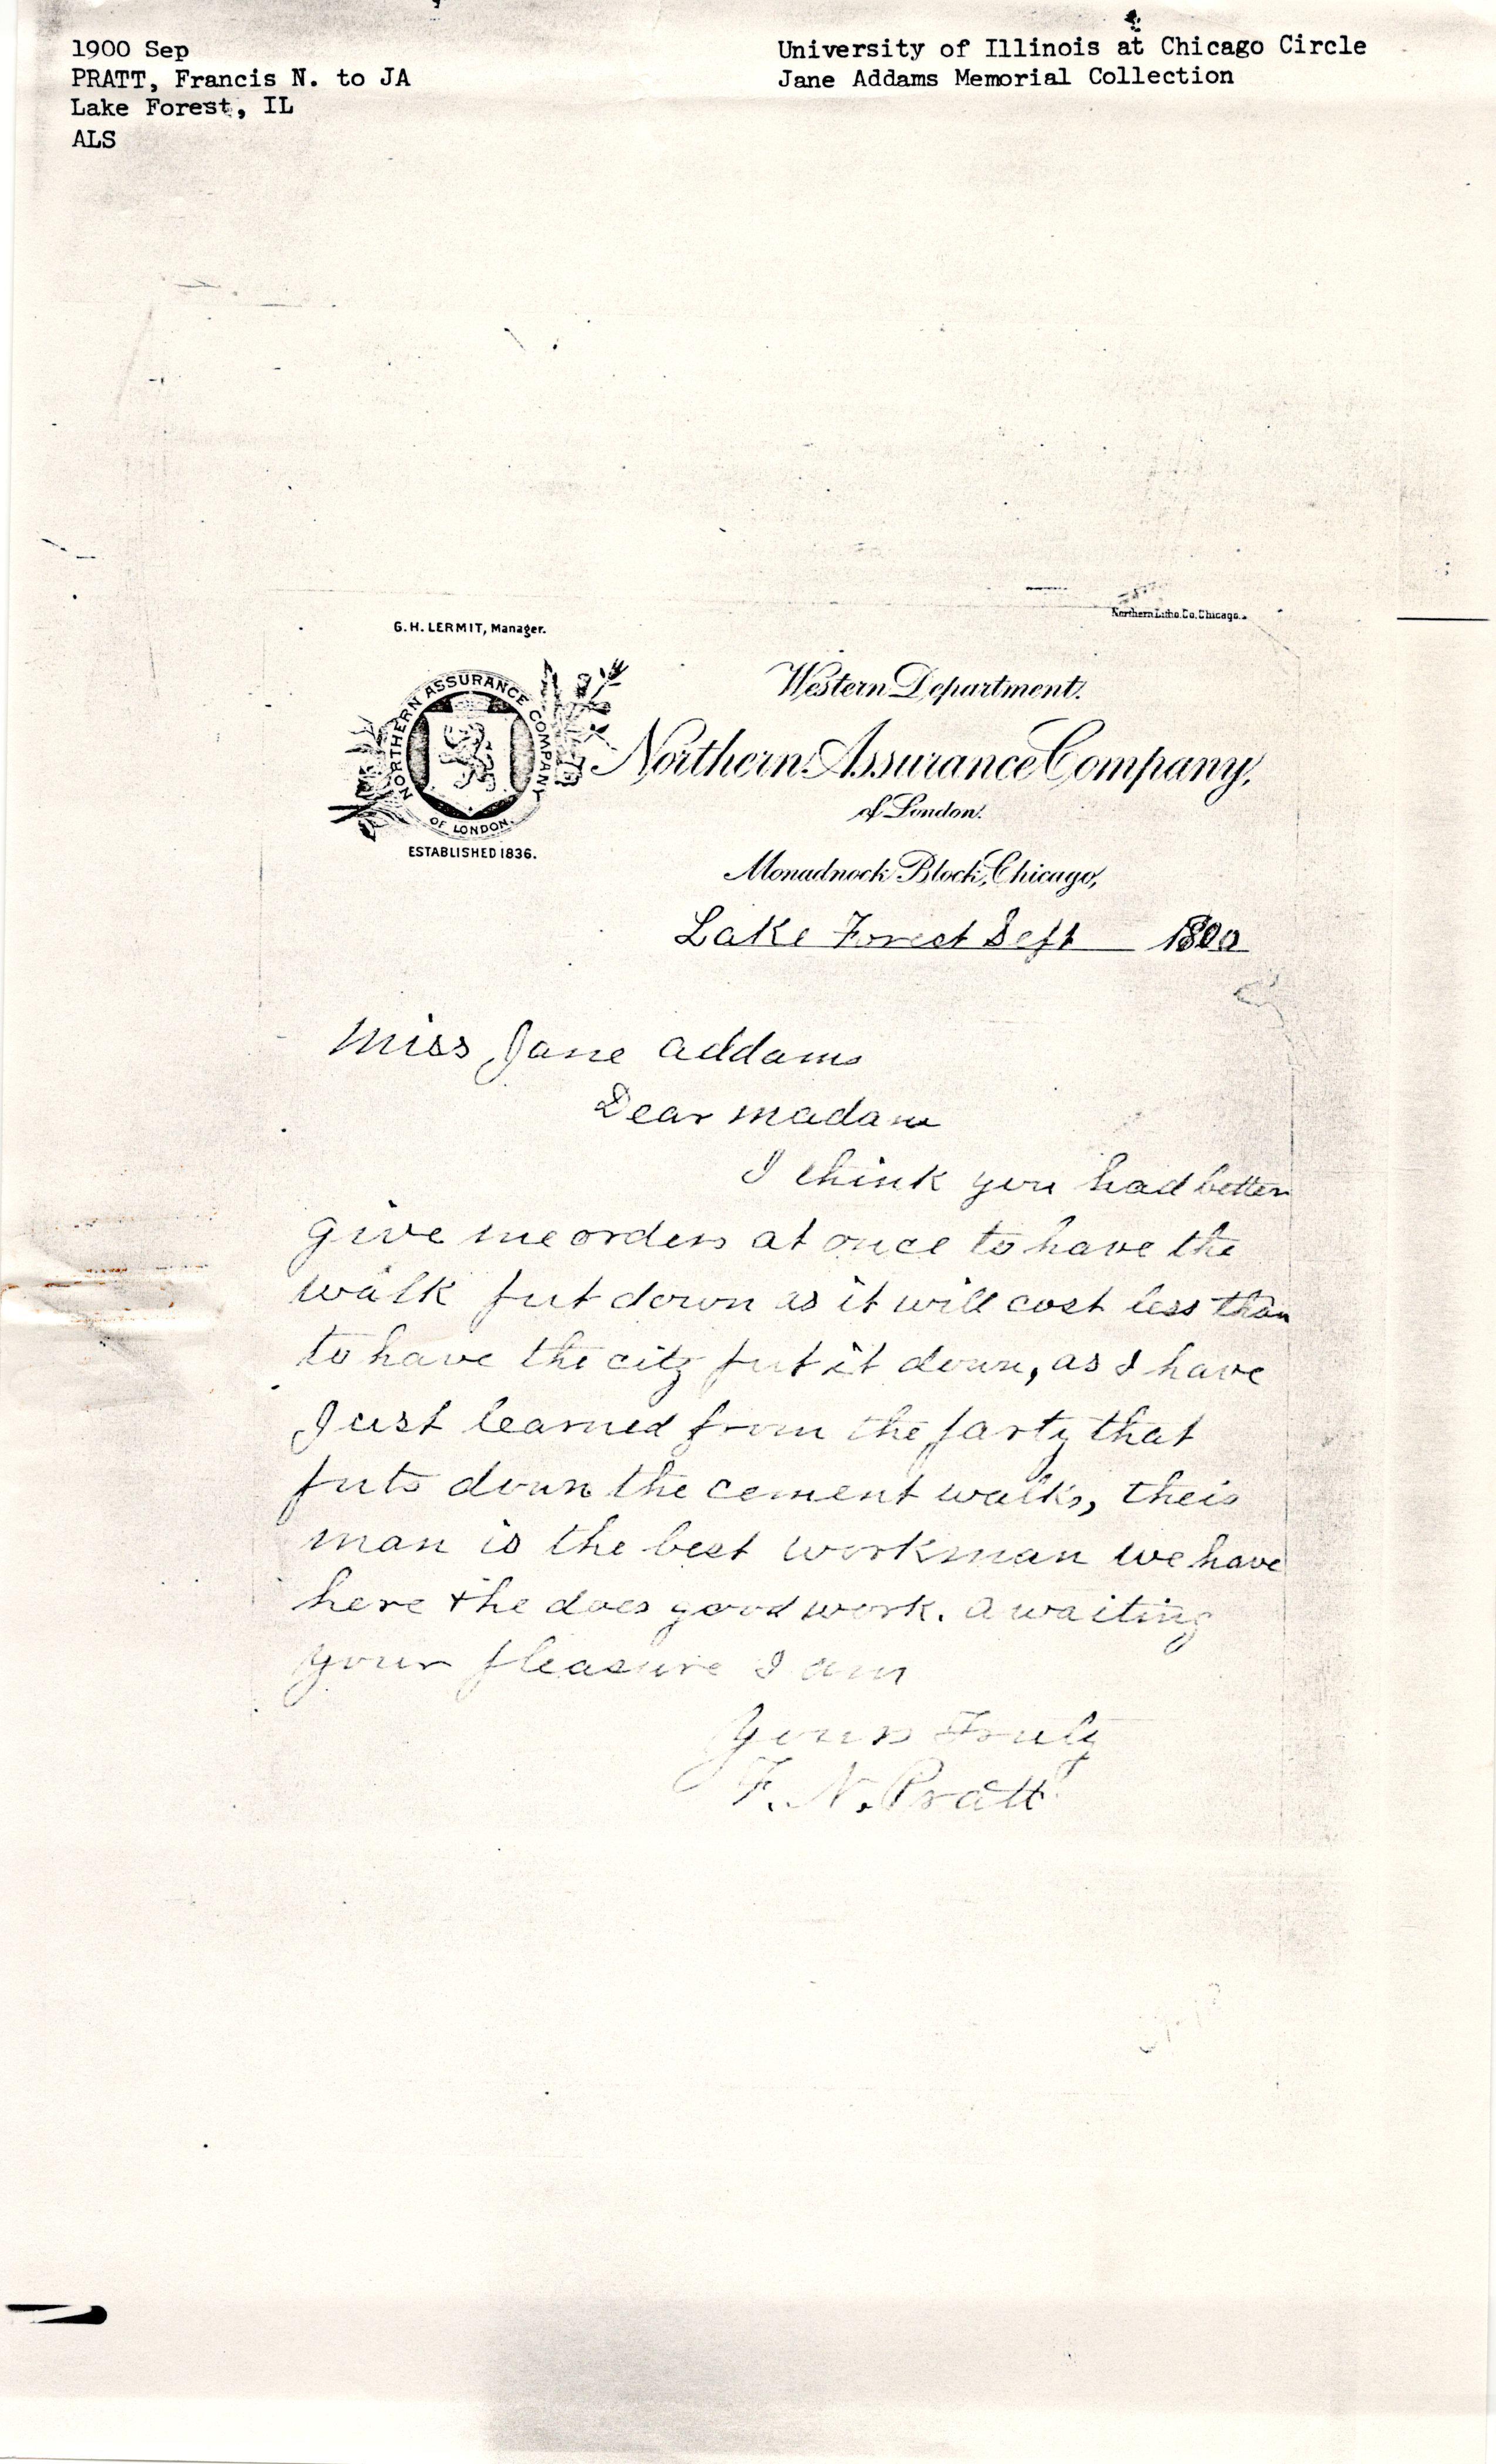 1900 Sep
PRATT, Francis N. to JA
Lake Forest, IL
ALS
University of Illinois at Chicago Circle
Jane Addams Memorial Collection
G. H. LERMIT, Manager.
Northern Litho. Co. Chicago.
NORTHERN ASSURANCE COMPANY
OF LONDON.
ESTABLISHED 1836.
Western Department.
Northern Assurance Company,
of London.
Monadnock Block, Chicago,
Lake Forest Sept 1900
Miss Jane Addams
Dear Madam
I think you had better
give me orders at once to have the
walk put down as it will cost less than
to have the city put it down, as I have
Just learned from the party that
puts down the cement walks, theis
man is the best workman we have
here & he does good work. Awaiting
your pleasure I am
Yours Truly
F. N. Pratt